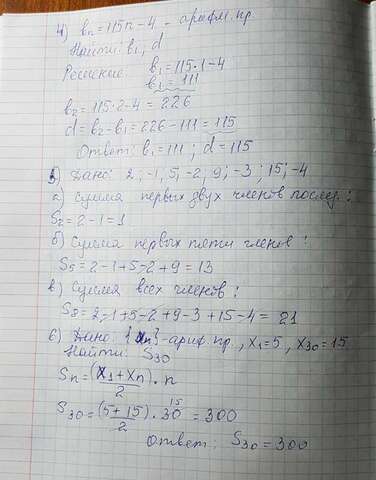 4) bn = 115n - 4 - арифм. пр
Найти: b1, d
Решение: b1 = 115·1-4
b1 = 111
b2 = 115·2-4 = 226
d = b2 - b1 = 226 - 111 = 115
Ответ: b1 = 111 ; d = 115
5) Дано: 2; -1; 5; -2; 9; -3; 15; -4
а) Сумма первых двух членов послед.:
S2 = 2-1 = 1
б) Сумма первых пяти членов:
S5 = 2-1+5-2+9 = 13
в) Сумма всех членов:
S8 = 2-1+5-2+9-3+15-4 = 21
6) Дано: {xn} - ариф пр, x1=5, x30=15
Найти: S30
Sn = (x1 + xn)/2 · n
S30 = (5+15)/2 · 30 15 = 300
Ответ: S30 = 300